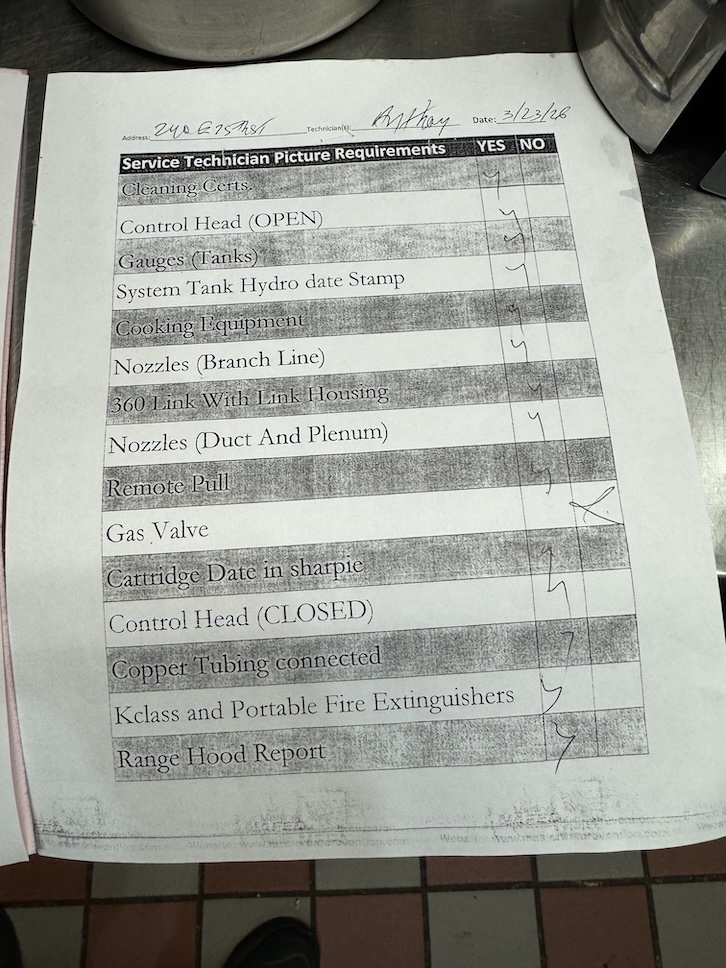 Address: 240 E 75th ST Technician(s): Anthony Date: 3/23/26
Service Technician Picture Requirements YES NO
Cleaning Certs. y
Control Head (OPEN) y
Gauges (Tanks) y
System Tank Hydro date Stamp y
Cooking Equipment y
Nozzles (Branch Line) y
360 Link With Link Housing y
Nozzles (Duct And Plenum) y
Remote Pull y
Gas Valve
Cartridge Date in sharpie y
Control Head (CLOSED) y
Copper Tubing connected y
Kclass and Portable Fire Extinguishers y
Range Hood Report y